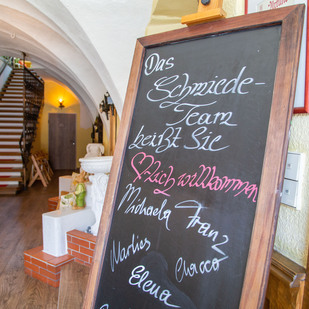 Das
Schmiede-
Team
heißt Sie
♥-lich willkommen
Michaela Franz
Marlies
Chacco
Elena